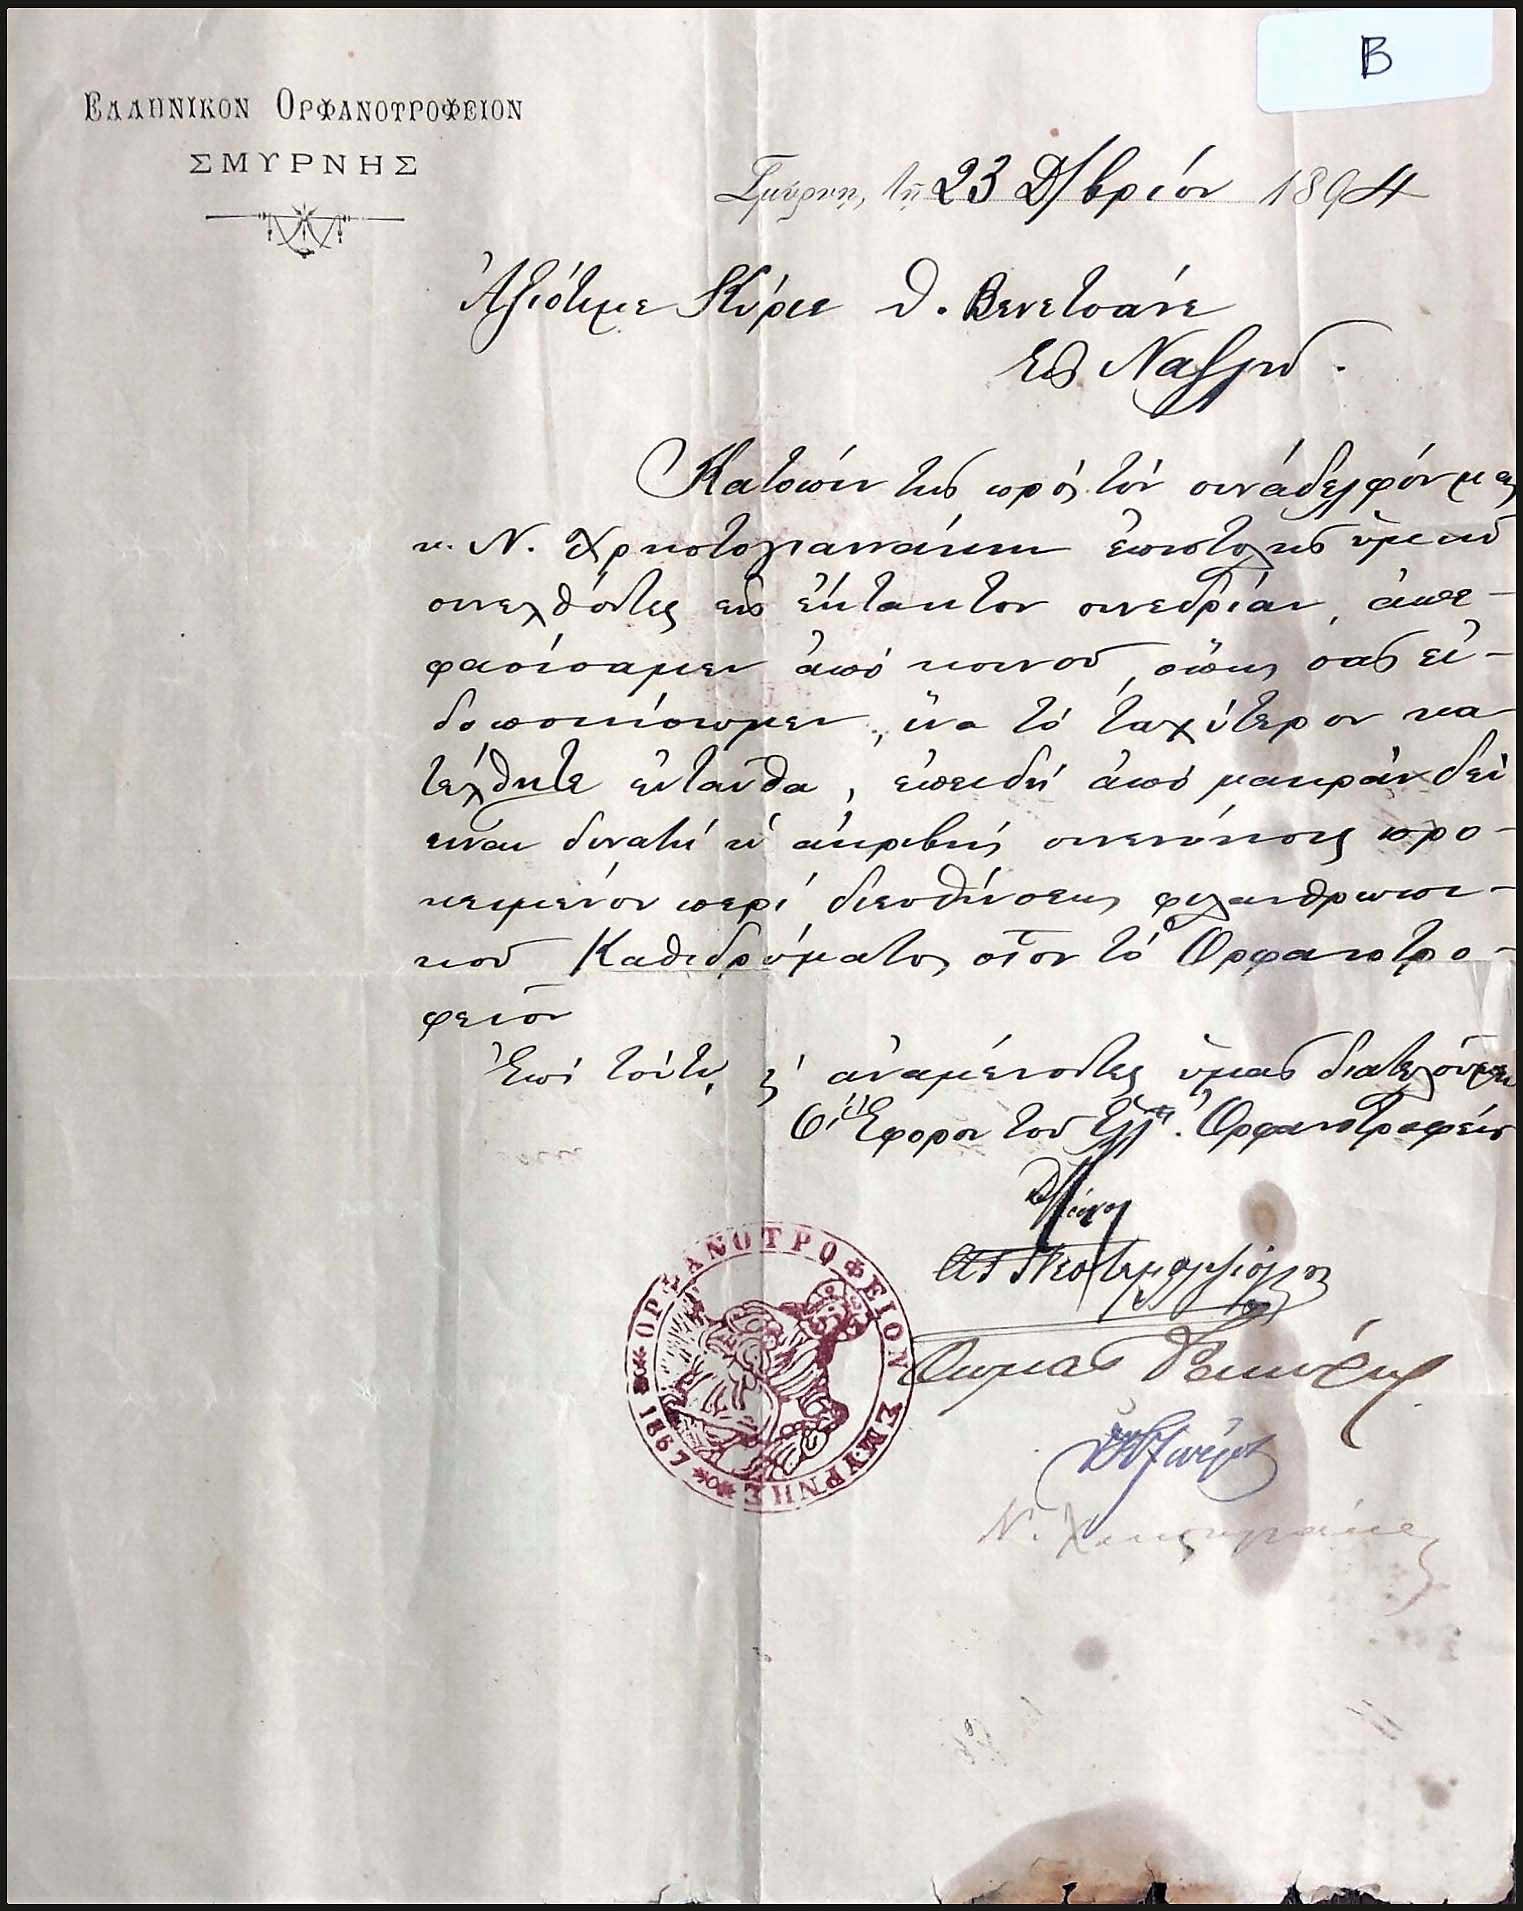 B
ΕΛΛΗΝΙΚΟΝ ΟΡΦΑΝΟΤΡΟΦΕΙΟΝ
ΣΜΥΡΝΗΣ
Σμύρνη, τῇ 23 Δ/βρίου 1894
Ἀξιότιμε Κύριε Θ. Βενετσάνε
Εἰς Ναζλῆ.
Κατόπιν τῆς πρός τόν συνάδελφόν μας
κ. Ν. Χρηστογιαννάκην ἐπιστολῆς ὑμῶν
συνελθόντες εἰς ἔκτακτον συνεδρίαν, ἀπε-
φασίσαμεν ἀπό κοινοῦ, ὅπως σας εἰ-
δοποιήσωμεν, ἵνα τό ταχύτερον κα
τέλθητε ἐνταῦθα, ἐπειδή ἀπό μακράν δέν
εἶναι δυνατή ἡ ἀκριβής συνεννόησις προ-
κειμένου περί διευθύνσεως φιλανθρωπι-
κοῦ Καθιδρύματος οἷον τό Ὀρφανοτρο-
φεῖον
Ἐπί τούτῳ ἀναμένοντες ὑμᾶς διατελοῦμεν
Οἱ Ἔφοροι τοῦ Ἑλλ. Ὀρφανοτροφείου
ΟΡΦΑΝΟΤΡΟΦΕΙΟΝ ΣΜΥΡΝΗΣ
1867
Θωμας
Ν.